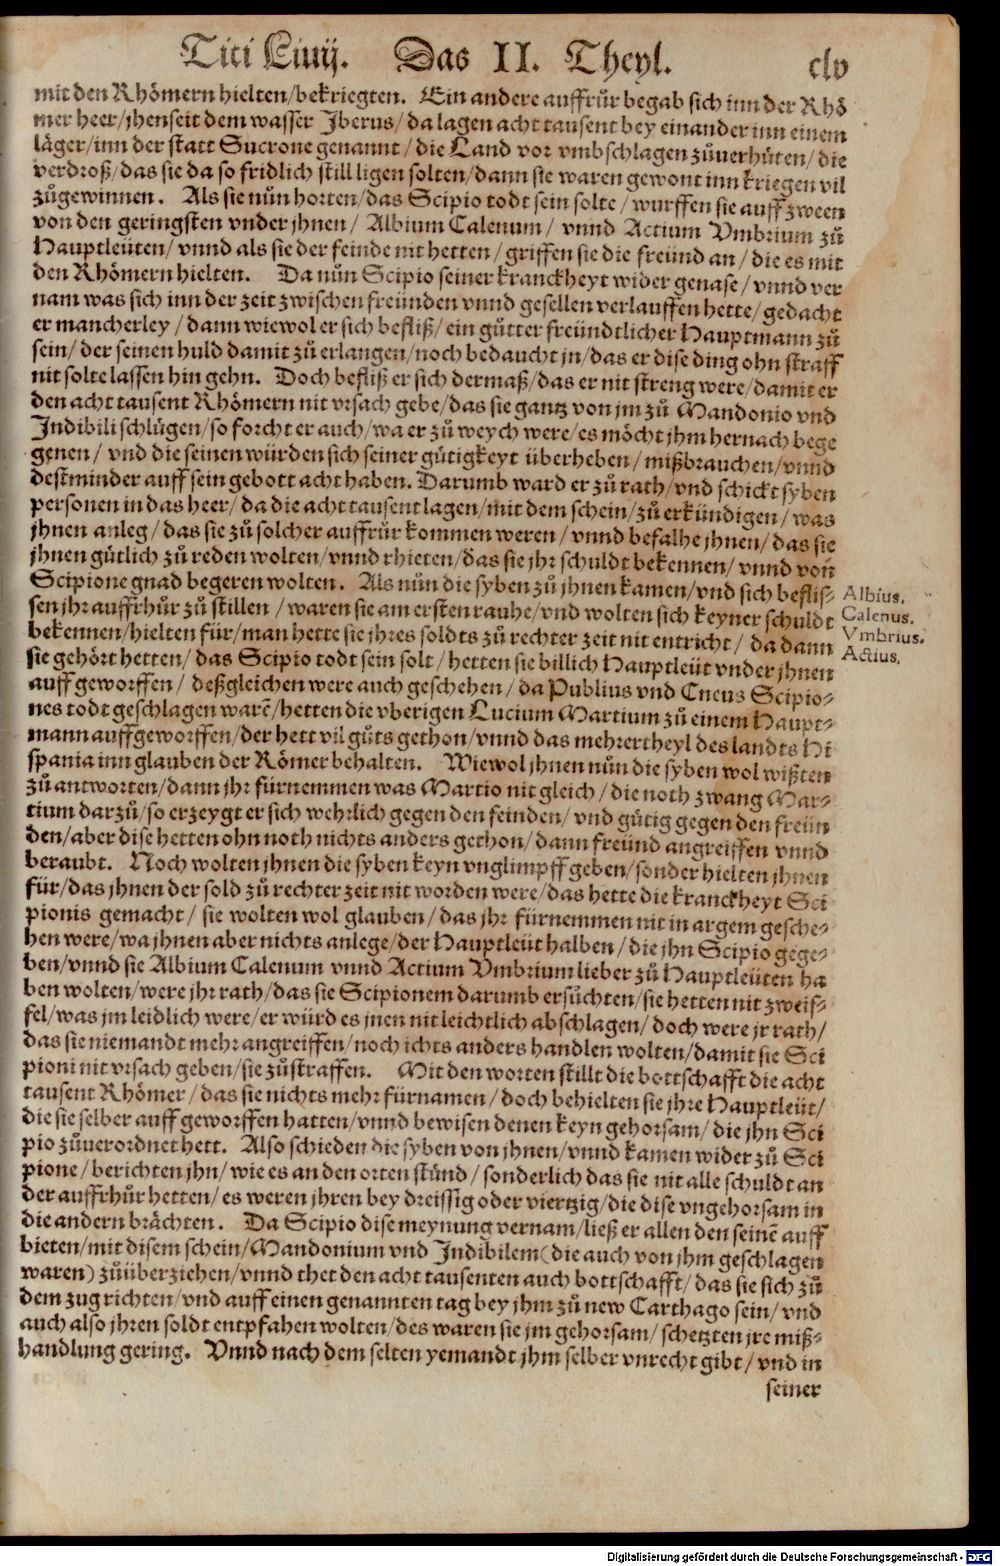 Titi Liuij. Das II. Theyl. clv
mit den Rhömern hielten/bekriegten. Ein andere auffrůr begab sich inn der Rhö
mer heer/jhenseit dem wasser Jberus/da lagen acht tausent bey einander inn einem
läger/inn der statt Sucrone genannt/die Land vor vmbschlagen zůuerhüten/die
verdroß/das sie da so fridlich still ligen solten/dann sie waren gewont inn kriegen vil
zůgewinnen. Als sie nůn horten/das Scipio todt sein solte/wurffen sie auff zween
von den geringsten vnder jhnen/Albium Calenum/vnnd Actium Vmbrium zů
Hauptleüten/vnnd als sie der feinde nit hetten/griffen sie die freünd an/die es mit
den Rhömern hielten. Da nůn Scipio seiner kranckheyt wider genase/vnnd ver
nam was sich inn der zeit zwischen freünden vnnd gesellen verlauffen hette/gedacht
er mancherley/dann wiewol er sich befliß/ein gůtter freündtlicher Hauptmann zů
sein/der seinen huld damit zů erlangen/noch bedaucht jn/das er dise ding ohn straff
nit solte lassen hin gehn. Doch befliß er sich dermaß/das er nit streng were/damit er
den acht tausent Rhömern nit vrsach gebe/das sie gantz von jm zů Mandonio vnd
Indibili schlügen/so forcht er auch/wa er zů weych were/es möcht jhm hernach bege
genen/vnd die seinen würden sich seiner gütigkeyt überheben/mißbrauchen/vnnd
destminder auff sein gebott acht haben. Darumb ward er zů rath/vnd schickt syben
personen in das heer/da die acht tausent lagen/mit dem schein/zů erkündigen/was
jhnen anleg/das sie zů solcher auffrůr kommen weren/vnnd befalhe jhnen/das sie
jhnen gütlich zů reden wolten/vnnd rhieten/das sie jhr schuldt bekennen/vnnd von
Scipione gnad begeren wolten. Als nůn die syben zů jhnen kamen/vnd sich beflis-
sen jhr auffrhůr zů stillen/waren sie am ersten rauhe/vnd wolten sich keyner schuldt
bekennen/hielten für/man hette sie jhres soldts zů rechter zeit nit entricht/da dann
sie gehört hetten/das Scipio todt sein solt/hetten sie billich Hauptleüt vnder jhnen
auff geworffen/deßgleichen were auch geschehen/da Publius vnd Cneus Scipio-
nes todt geschlagen warē/hetten die vberigen Lucium Martium zů einem Haupt-
mann auffgeworffen/der hett vil gůts gethon/vnnd das mehrertheyl des landts Hi
spania inn glauben der Römer behalten. Wiewol jhnen nůn die syben wol wißten
zů antworten/dann jhr fürnemmen was Martio nit gleich/die noth zwang Mar-
tium darzů/so erzeygt er sich wehrlich gegen den feinden/vnd gütig gegen den freün
den/aber dise hetten ohn noth nichts anders gethon/dann freünd angreiffen vnnd
beraubt. Noch wolten jhnen die syben keyn vnglimpff geben/sonder hielten jhnen
für/das jhnen der sold zů rechter zeit nit worden were/das hette die kranckheyt Sci
pionis gemacht/sie wolten wol glauben/das jhr fürnemmen nit in argem gesche-
hen were/wa jhnen aber nichts anlege/der Hauptleüt halben/die jhn Scipio gege-
ben/vnnd sie Albium Calenum vnnd Actium Vmbrium lieber zů Hauptleüten ha
ben wolten/were jhr rath/das sie Scipionem darumb ersůchten/sie hetten nit zweif-
fel/was jm leidlich were/er würd es jnen nit leichtlich abschlagen/doch were jr rath/
das sie niemandt mehr angreiffen/noch ichts anders handlen wolten/damit sie Sci
pioni nit vrsach geben/sie zůstraffen. Mit den worten stillt die bottschafft die acht
tausent Rhömer/das sie nichts mehr fürnamen/doch behielten sie jhre Hauptleüt/
die sie selber auff geworffen hatten/vnnd bewisen denen keyn gehorsam/die jhn Sci
pio zůuerordnet hett. Also schieden die syben von jhnen/vnnd kamen wider zů Sci
pione/berichten jhn/wie es an den orten stůnd/sonderlich das sie nit alle schuldt an
der auffrhůr hetten/es weren jhren bey dreissig oder viertzig/die dise vngehorsam in
die andern brächten. Da Scipio dise meynung vernam/ließ er allen den seinē auff
bieten/mit disem schein/Mandonium vnd Indibilem(die auch von jhm geschlagen
waren)zůüberziehen/vnnd thet den acht tausenten auch bottschafft/das sie sich zů
dem zug richten/vnd auff einen genannten tag bey jhm zů new Carthago sein/vnd
auch also jhren soldt entpfahen wolten/des waren sie jm gehorsam/schetzten jre miß-
handlung gering. Vnnd nach dem selten yemandt jhm selber vnrecht gibt/vnd in
seiner
Albius.
Calenus.
Vmbrius.
Actius.
Digitalisierung gefördert durch die Deutsche Forschungsgemeinschaft - DFG